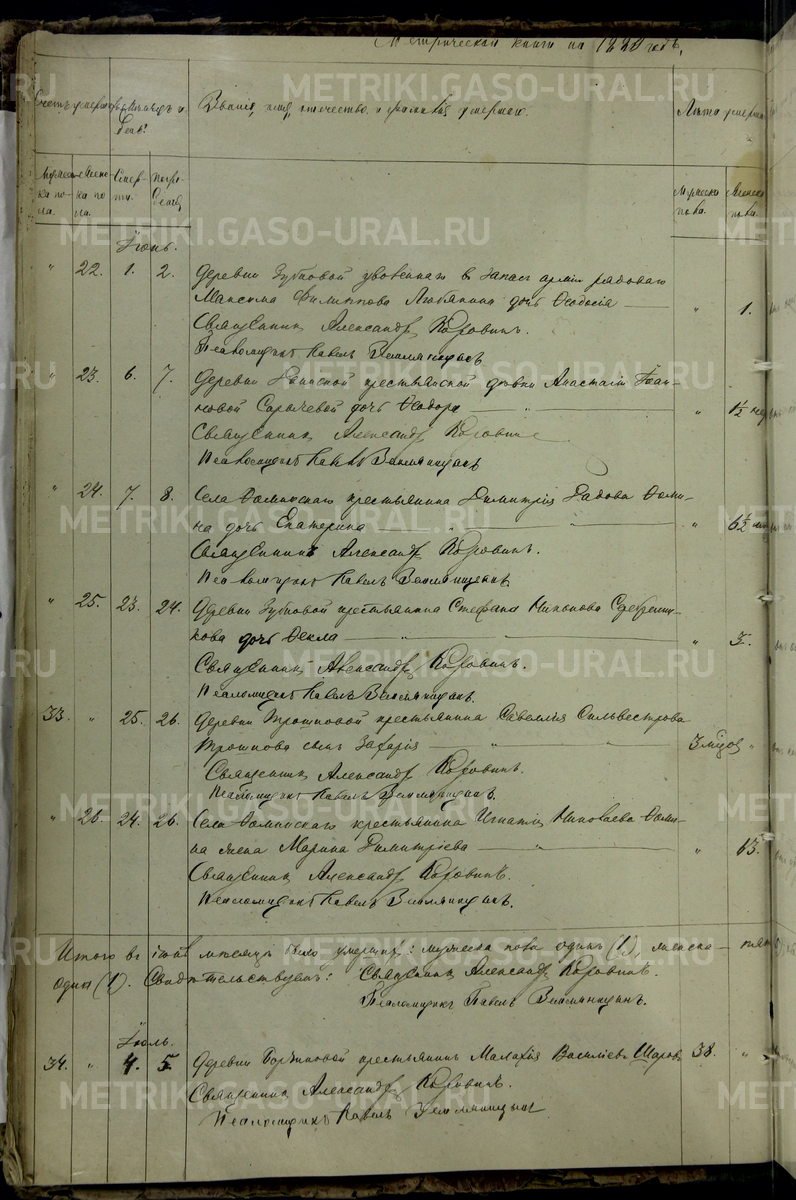 Метрической книги на 188 годъ.
Счетъ умерш. Мѣсяцъ и день. Званіе, имя, отчество и фамилія умершаго. Лѣта умерша
Мужеска пола. Женска пола. Смерти. Погребенія. Мужеско пола. Женско пола.
Іюнь.
" 22. 1. 2. Деревни Зубковой уволеннаго въ запасъ арміи рядоваго
Максима Филиппова дочь Ѳеодосія — " 1.
Священникъ Александръ Коровинъ.
Псаломщикъ Павелъ Земляницынъ
" 23. 6. 7. Деревни крестьянской дѣвки Анастасіи Іван-
новой Сарычевой дочь Ѳеодора — " — " 1½ нед
Священникъ Александръ Коровинъ
Псаломщикъ Павелъ Земляницынъ
" 24. 7. 8. Села крестьянина Димитрія
на дочь Екатерина — " — " — " 6½
Священникъ Александръ Коровинъ.
Псаломщикъ Павелъ Земляницынъ
" 25. 23. 24. Деревни Зубковой крестьянина Стефана Никонова
кова дочь Ѳекла — " — "
Священникъ Александръ Коровинъ.
Псаломщикъ Павелъ Земляницынъ.
33. " 25. 26. Деревни Трошковой крестьянина Савелія Сильвестрова
Трошкова сынъ Захарія — " — " 3 "
Священникъ Александръ Коровинъ.
Псаломщикъ Павелъ Земляницынъ.
" 26. 24. 26. Села крестьянина Игнатія Николаева
на жена Марина Димитріева — " — " 63.
Священникъ Александръ Коровинъ.
Псаломщикъ Павелъ Земляницынъ.
Итого въ іюнѣ мѣсяцѣ было умершихъ: мужеска пола одинъ (1), женска — пят
одинъ (1). Свидѣтельствуемъ: Священникъ Александръ Коровинъ.
Псаломщикъ Павелъ Земляницынъ.
Іюль.
34. " 4. 5. Деревни крестьянинъ Малахія Василіевъ Шаровъ 38. "
Священникъ Александръ Коровинъ.
Псаломщикъ Павелъ Земляницынъ
METRIKI.GASO-URAL.RU